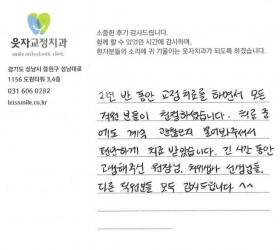 웃자교정치과
smile orthodontic clinic
경기도 성남시 중원구 성남대로
1156 도원타워 3,4층
031 606 0282
letssmile.co.kr
소중한 후기 감사드립니다.
함께 할 수 있었던 시간에 감사하며,
환자분들의 소리에 귀 기울이는 웃자치과가 되도록 하겠습니다.
2년 반 동안 교정 치료를 하면서 모든
직원 분들이 친절하셨습니다. 치료 중
에도 계속 괜찮은지 물어봐주셔서
편안하게 치료 받았습니다. 긴 시간 동안
고생해주신 원장님, 치위생사 선생님들,
다른 직원분들 모두 감사드립니다 ^^